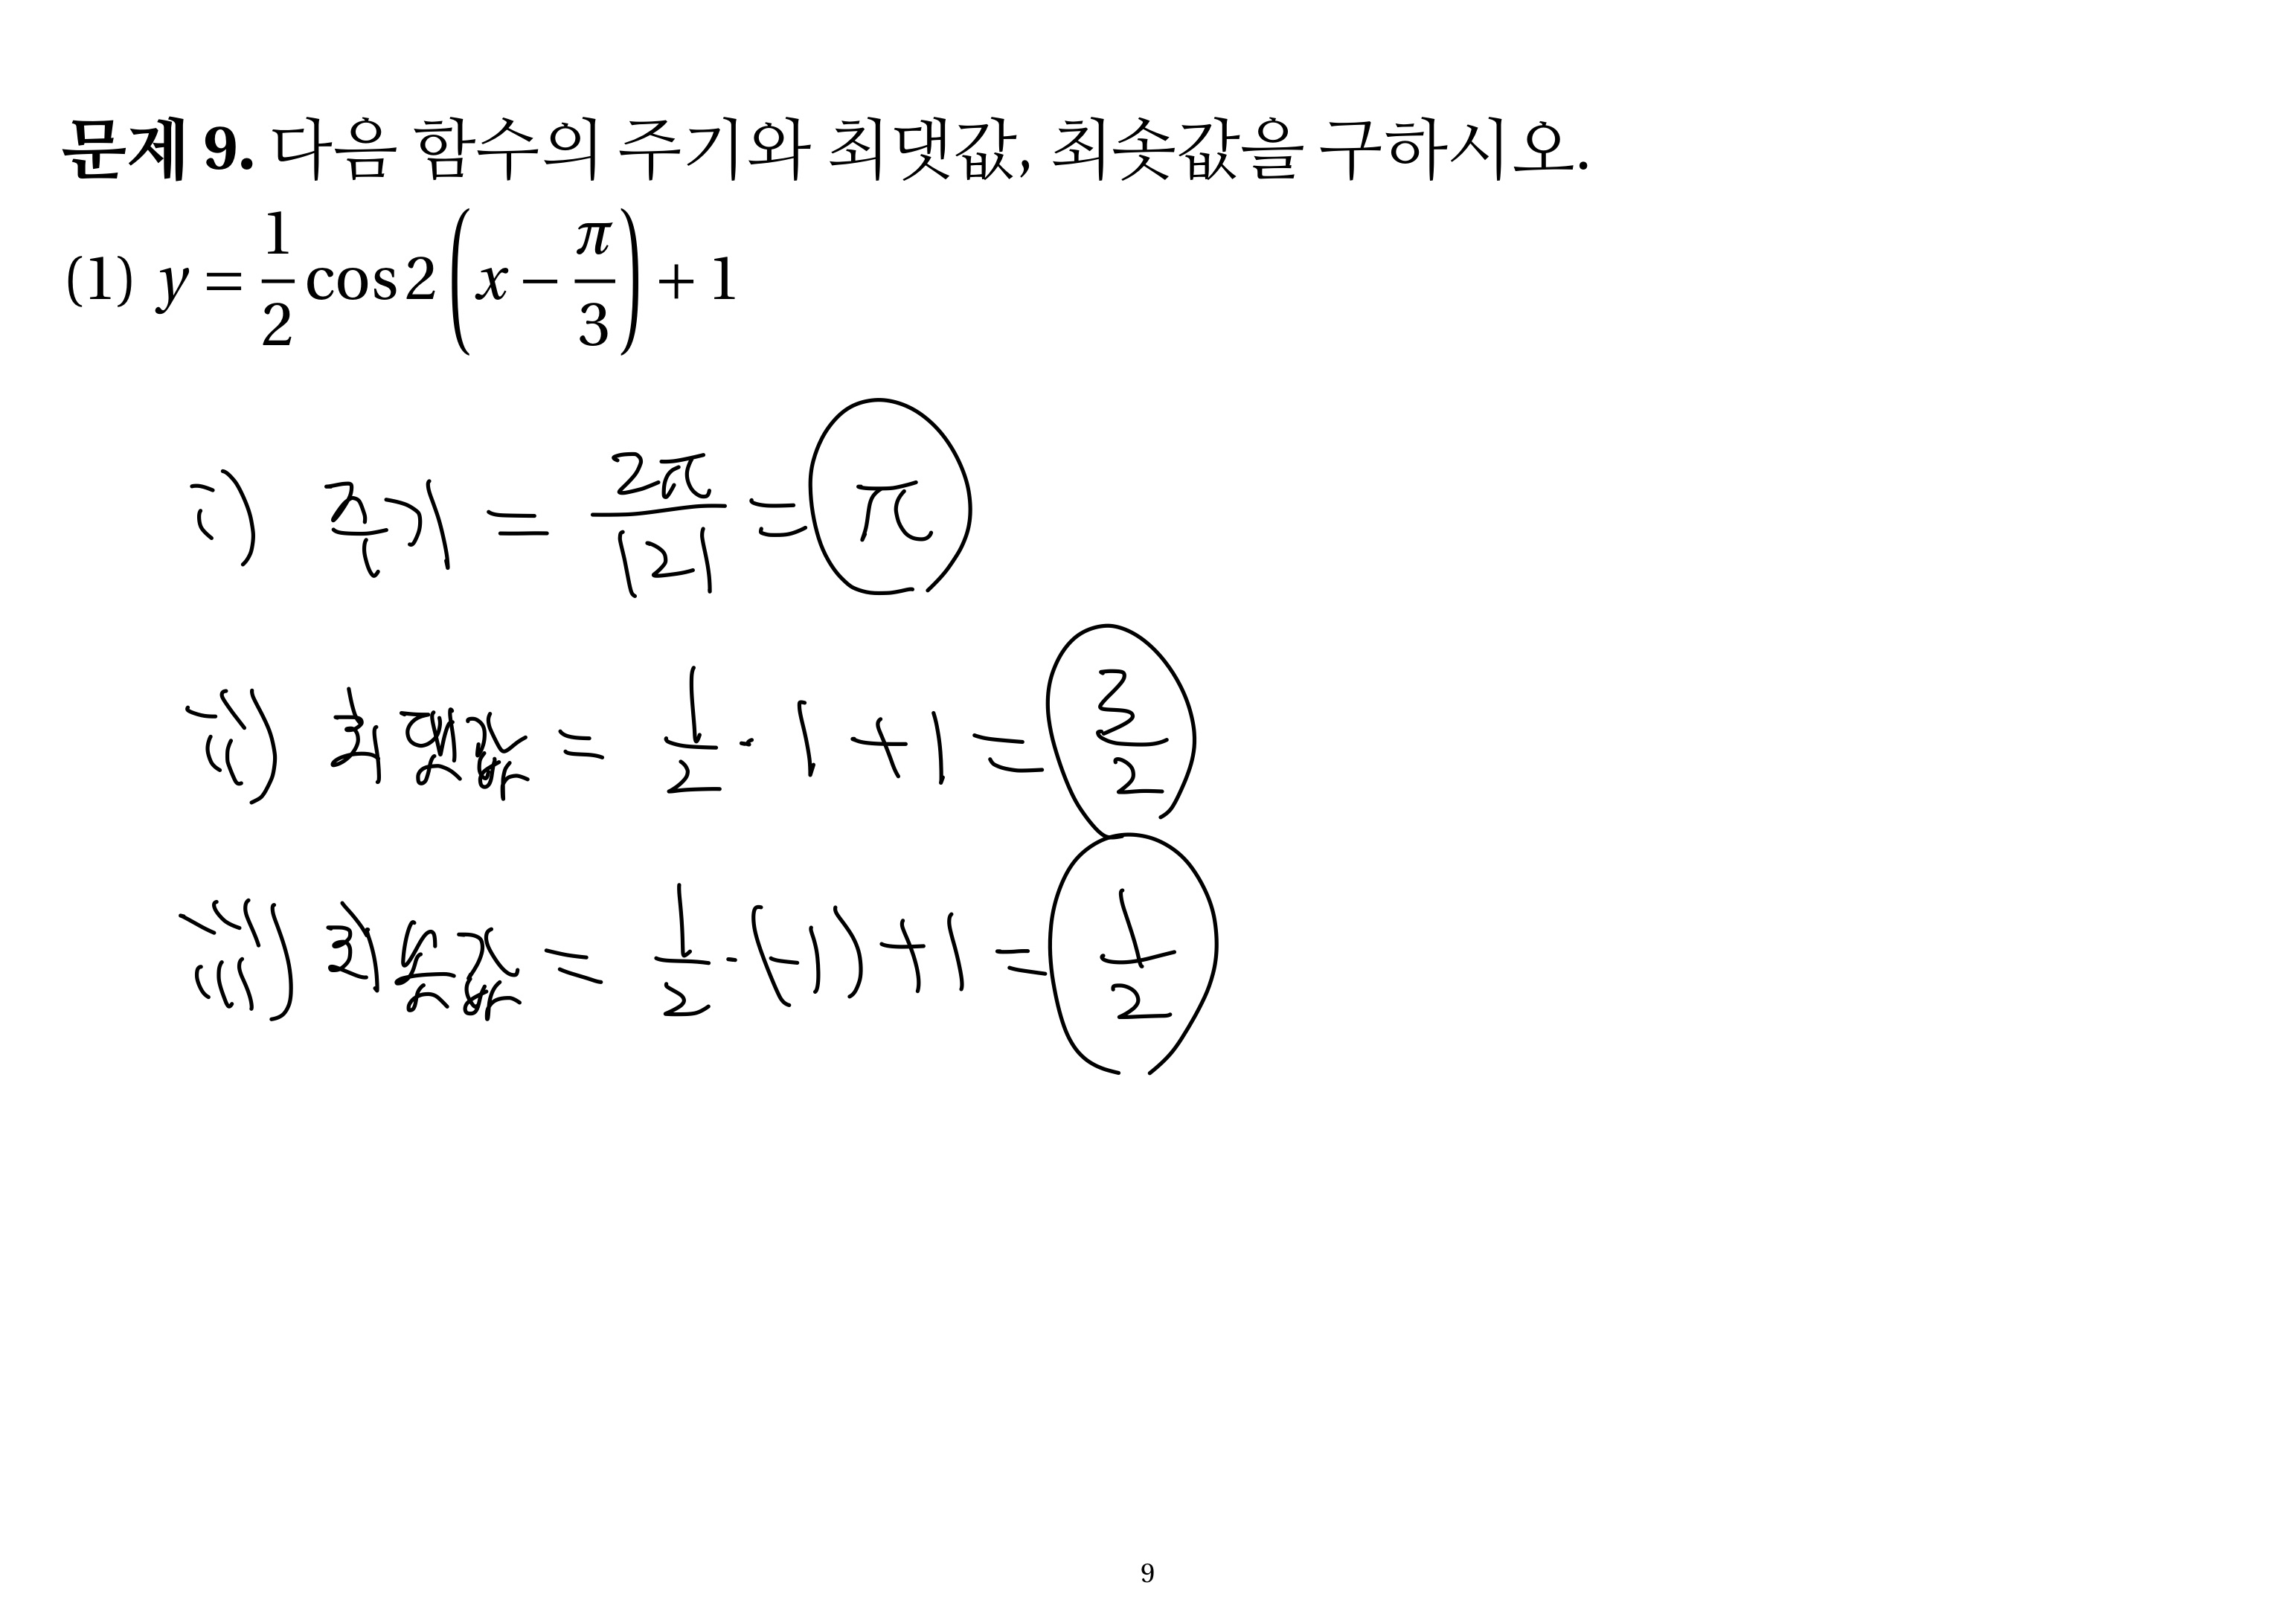 문제 9. 다음 함수의 주기와 최댓값, 최솟값을 구하시오.
(1) y = 1/2 cos 2 (x − π/3) + 1
i) 주기 = 2π/|2| = π
ii) 최댓값 = 1/2 · 1 + 1 = 3/2
iii) 최솟값 = 1/2 · (-1) + 1 = 1/2
9